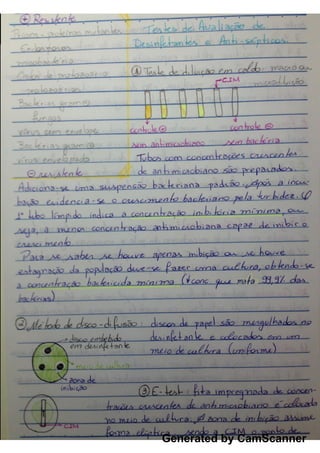 ⊕ Resistente
Príons: proteínas mutantes
Endosporos
micobactéria
Cistos de protozoário
protozoários
Bactérias gram ⊖
fungos
vírus sem envelope
Bactérias gram ⊕
vírus envelopado
⊖ resistente
Testes de Avaliação de
Desinfetantes e Anti-sépticos
① Teste de diluição em caldo: macro ou
microdiluição
CIM
controle ⊕ controle ⊖
sem antimicrobiano sem bactéria
Tubos com concentrações crescentes
de antimicrobiano são preparados.
Adiciona-se uma suspensão bacteriana padrão. Após a incu-
bação evidencia-se o crescimento bacteriano pela turbidez. O
1º tubo límpido indica a concentração inibitória mínima, ou
seja, a menor concentração antimicrobiana capaz de inibir o
crescimento.
Para se saber se houve apenas inibição ou se houve
estagnação da população deve-se fazer uma cultura, obtendo-se
a concentração bactericida mínima (↓conc que mata 99,9% das
bactérias)
② Método de disco-difusão: discos de papel são mergulhados no
desinfetante e colocados em um
meio de cultura (uniforme)
disco embebido
em desinfetante
meio de cultura
zona de
inibição
③ E-test: fita impregnada de concen-
trações crescentes de antimicrobiano é colocada
no meio de cultura. A zona de inibição assume
forma elíptica, sendo a CIM o ponto de
CIM
Generated by CamScanner